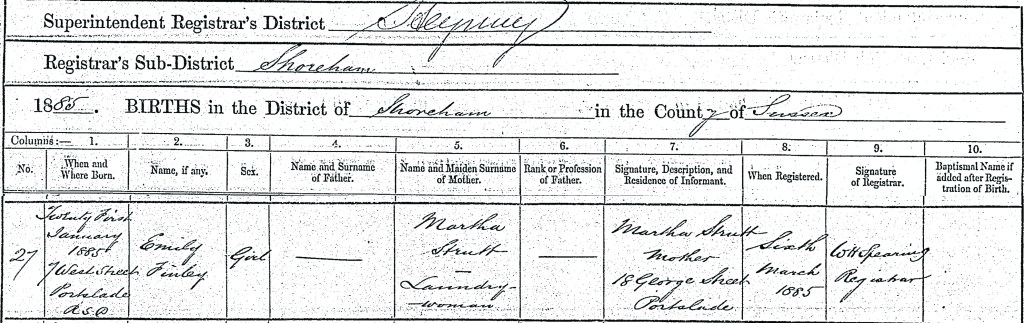 Superintendent Registrar's District Steyning
Registrar's Sub-District Shoreham
1885. BIRTHS in the District of Shoreham in the County of Sussex
Columns:— 1. 2. 3. 4. 5. 6. 7. 8. 9. 10.
No. When and Where Born. Name, if any. Sex. Name and Surname of Father. Name and Maiden Surname of Mother. Rank or Profession of Father. Signature, Description, and Residence of Informant. When Registered. Signature of Registrar. Baptismal Name if added after Registration of Birth.
27
Twenty First
January
1885
7 West Street
Portslade
R.S.D
Emily
Finley
Girl
—
Martha
Strutt
—
Laundry-
woman
—
Martha Strutt
Mother
18 George Street
Portslade
Sixth
March
1885
WH Spearing
Registrar